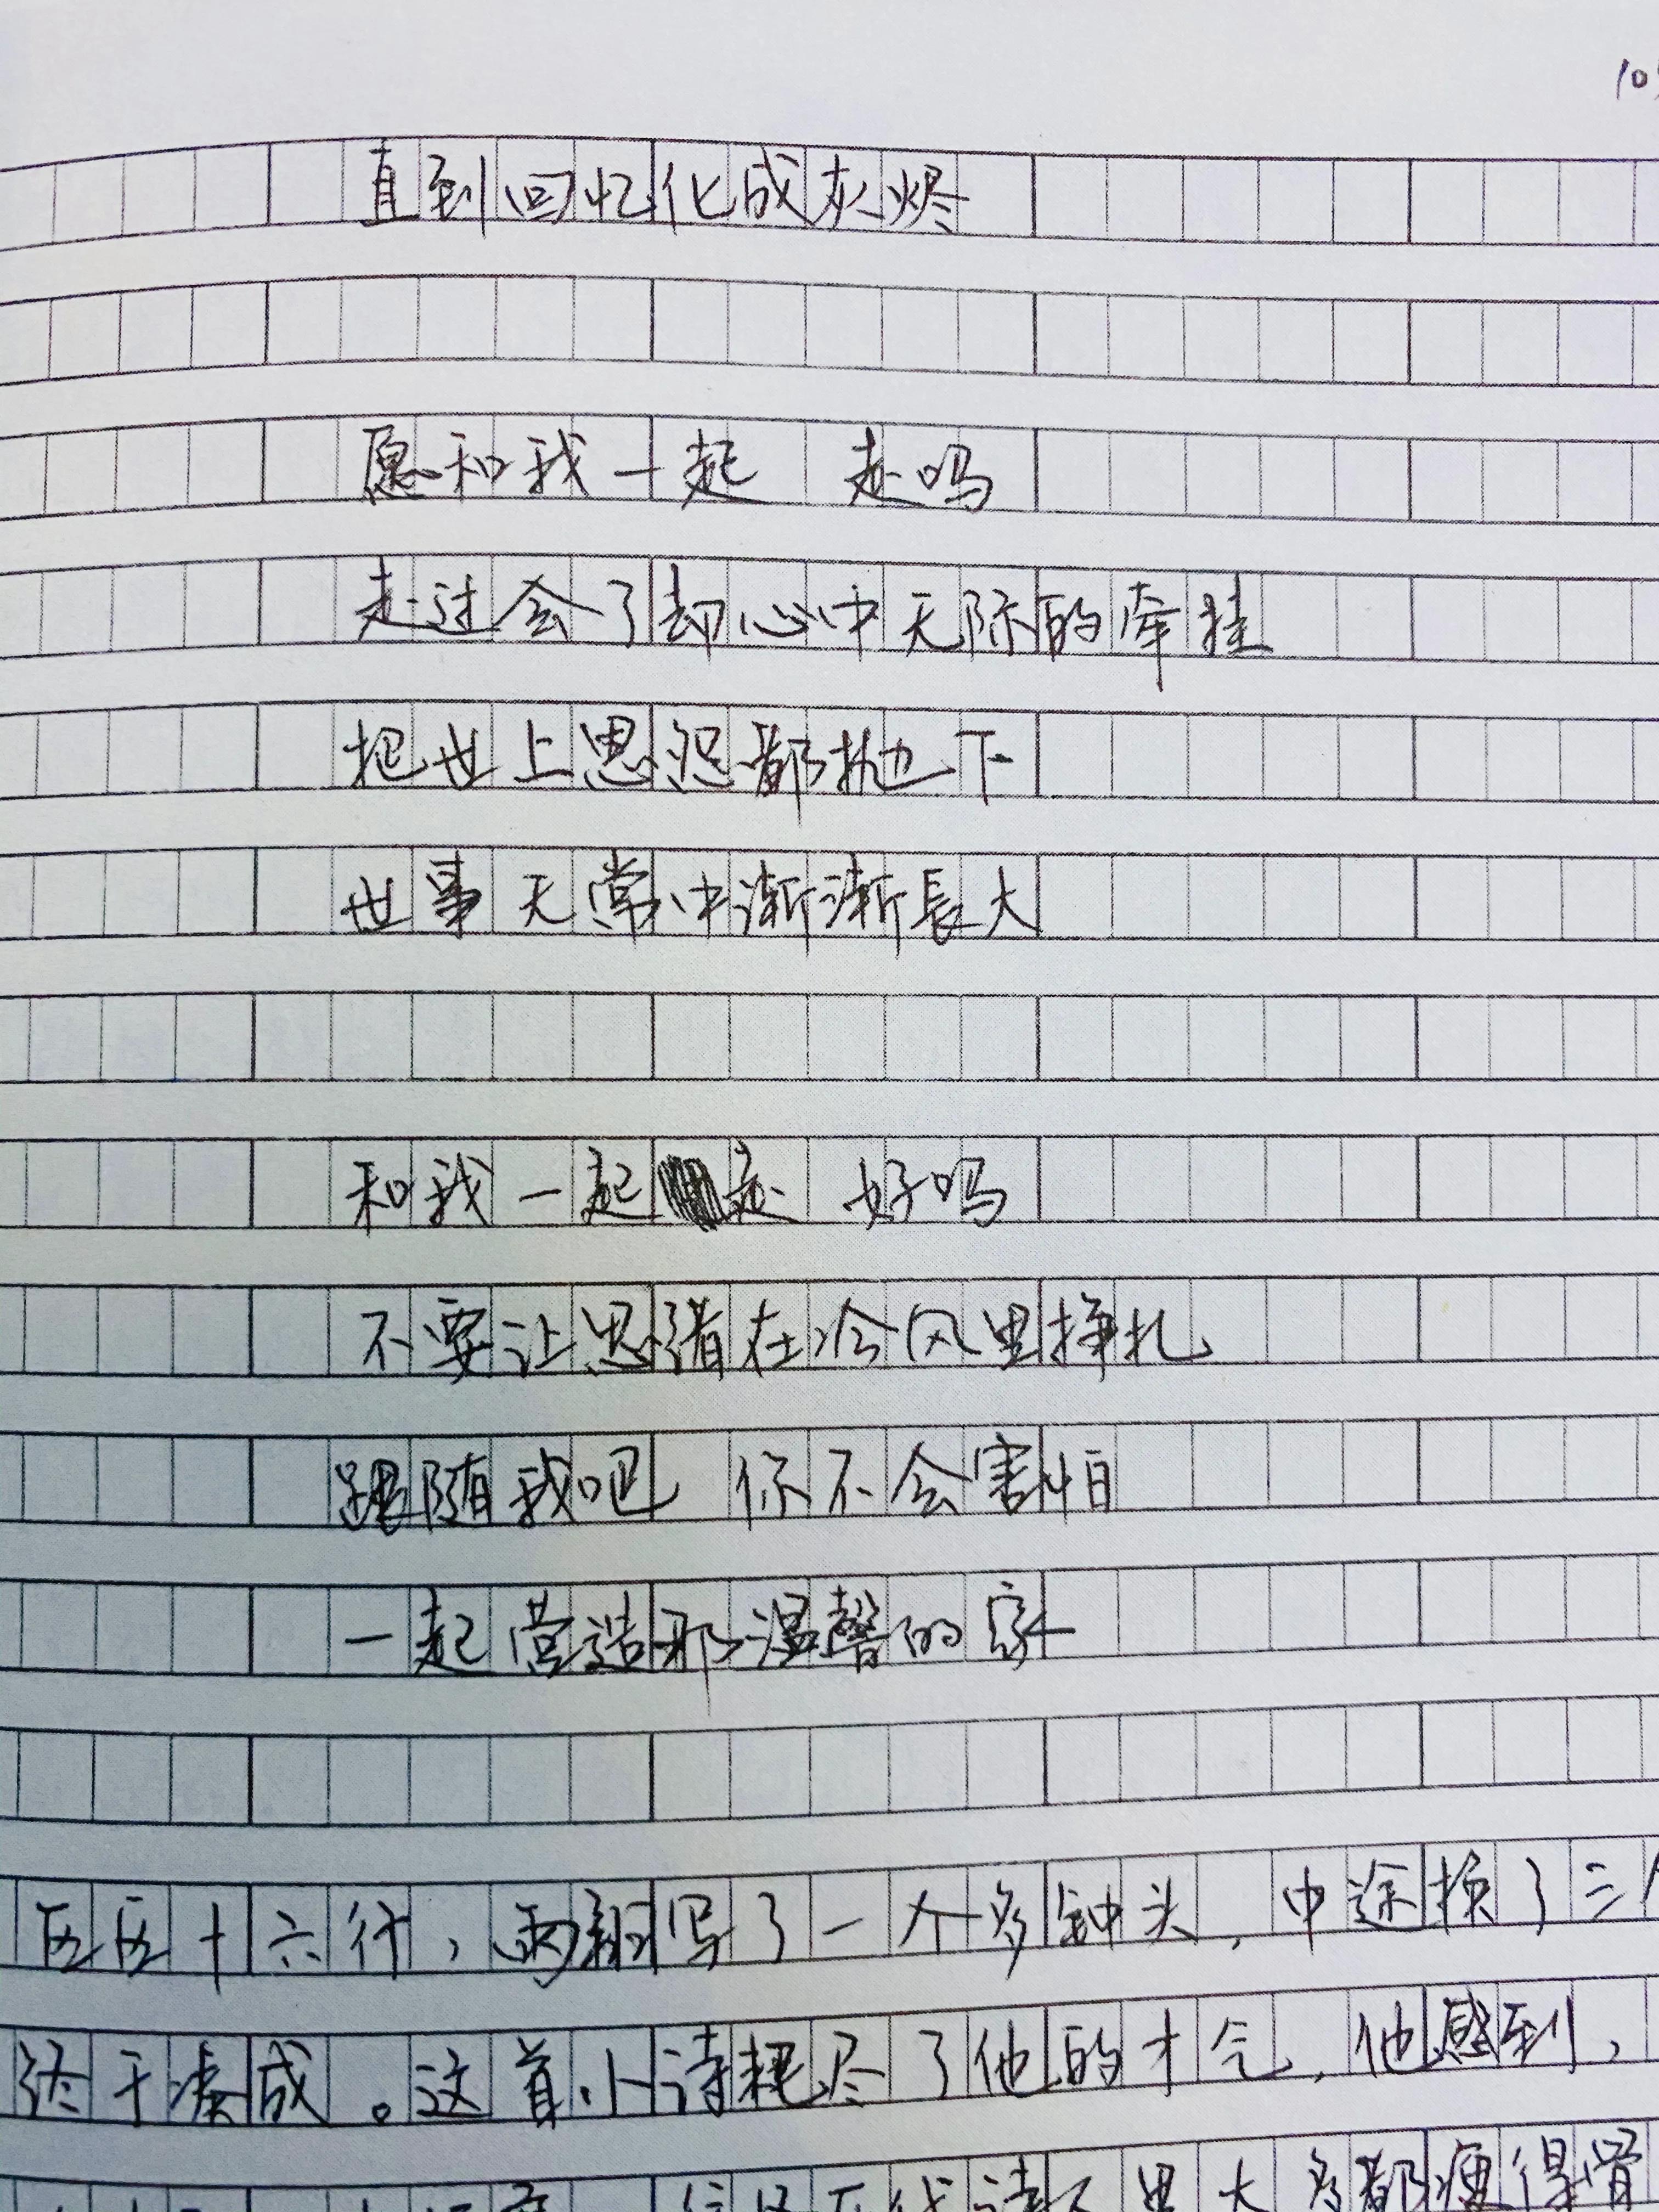 10
直到回忆化成灰烬
愿和我一起 走吗
走过会了却心中无际的牵挂
把世上恩怨都抛下
世事无常中渐渐長大
和我一起走 好吗
不要让思绪在冷风里挣扎
跟随我吧 你不会害怕
一起营造那温馨的家
区区十六行，雨翔写了一个多钟头，中途换了三
终于凑成。这首小诗耗尽了他的才气，他感到，
里大多都瘦得骨